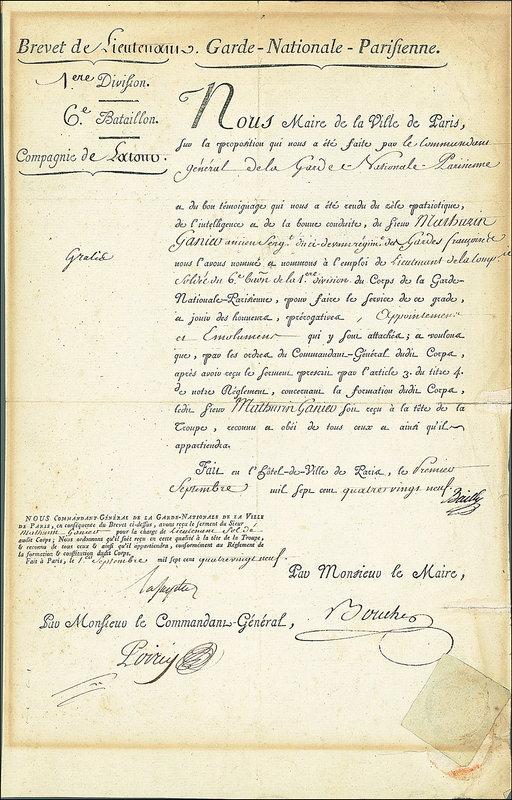 Brevet de Lieutenant. Garde-Nationale-Parisienne.
1.ere Division.
6.e Bataillon.
Compagnie de Latour.
Gratis
Nous Maire de la Ville de Paris,
sur la proposition qui nous a été faite par le Commandant
général de la Garde Nationale Parisienne
& du bon témoignage qui nous a été rendu du zèle patriotique,
de l'intelligence & de la bonne conduite, du Sieur Mathurin
Ganier ancien Serg.t du ci-devant régim.t des Gardes françoises
nous l'avons nommé & nommons à l'emploi de Lieutenant de la Comp.ie
Soldée du 6.e de la 1.ere division du Corps de la Garde-
Nationale-Parisienne, pour faire le service de ce grade,
& jouir des honneurs, prérogatives, Appointemens
et Emolumens qui y sont attachés; & voulons
que, par les ordres du Commandant-Général dudit Corps,
après avoir reçu le serment prescrit par l'article 3. du titre 4.
de notre Réglement, concernant la formation dudit Corps,
ledit Sieur Mathurin Ganier soit reçu à la tête de la
Troupe, reconnu & obéi de tous ceux & ainsi qu'il
appartiendra.
Fait en l'Hôtel-de-Ville de Paris, le Premier
Septembre mil sept cent quatre vingt neuf.
Bailly
NOUS COMMANDANT-GÉNÉRAL DE LA GARDE-NATIONALE DE LA VILLE
DE PARIS, en conséquence du Brevet ci-dessus, avons reçu le serment du Sieur
Mathurin Ganier pour la charge de Lieutenant Soldé
audit Corps; Nous ordonnons qu'il soit reçu en cette qualité à la tête de la Troupe,
& reconnu de tous ceux & ainsi qu'il appartiendra, conformément au Réglement de
la formation & constitution dudit Corps.
Fait à Paris, le 1.er Septembre mil sept cent quatre vingt neuf
Lafayette
Par Monsieur le Maire,
Boucher
Par Monsieur le Commandant-Général,
Poirey